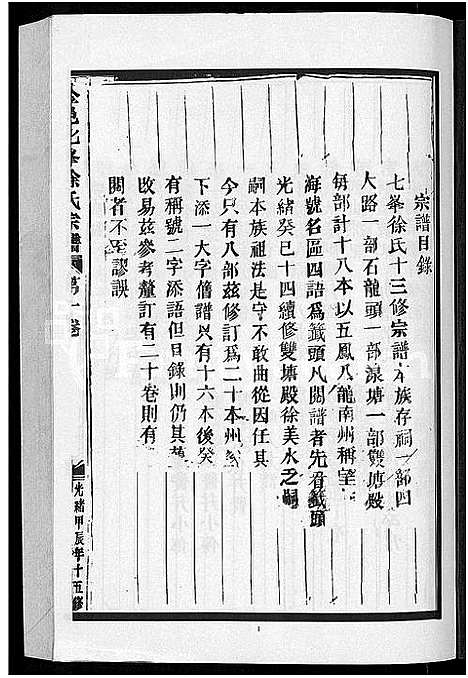 宗譜目錄
七峯徐氏十三修宗譜本族存祠一部四
大路一部石龍頭一部湶塘一部雙塘殿
每部計十八本以五鳳八龍南州稱望
海號名區四語爲籤頭凡閱譜者先看籤頭
光緒癸巳十四續修雙塘殿徐美水之嗣
嗣本族祖法是守不敢曲從因任其
今只有八部茲修訂爲二十本州
下添一大字舊譜只有十六本後癸
有稱號二字添語但目錄則仍其舊
改易茲參考釐訂有二十卷則有
閱者不至謬誤
金邑七峯徐氏宗譜
第一卷
光緒甲辰年十五修